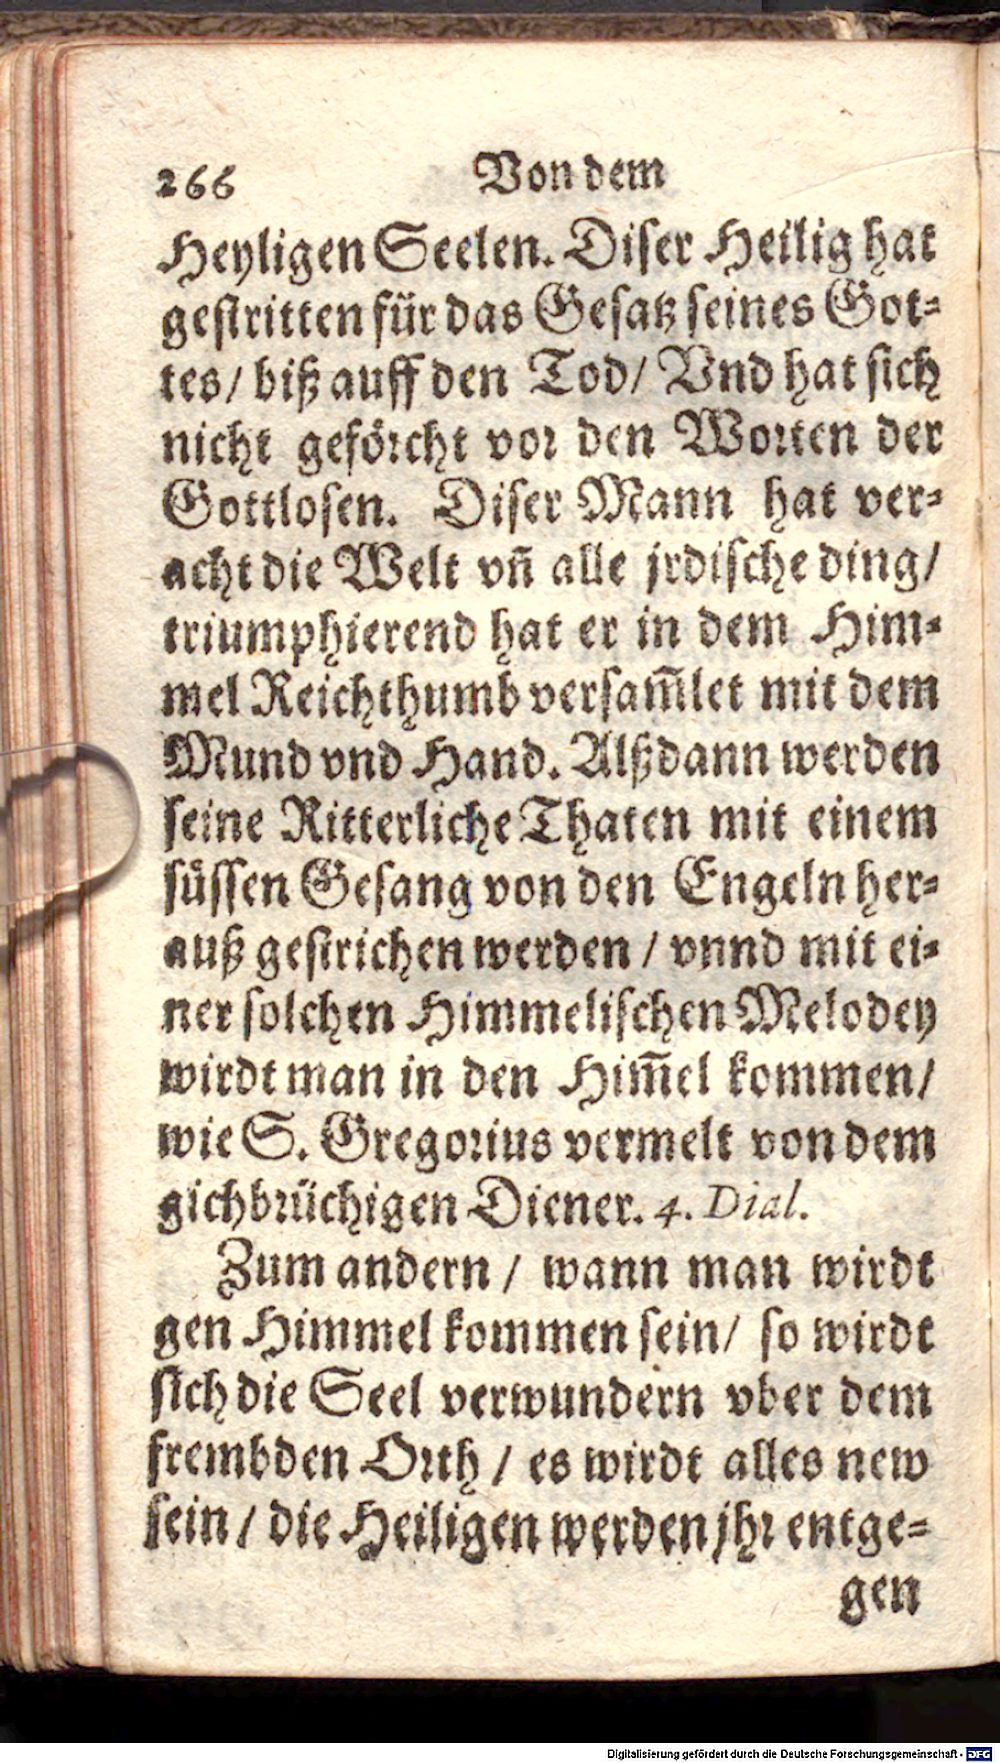 266 Von dem
Heyligen Seelen. Diser Heilig hat
gestritten für das Gesatz seines Got-
tes/ biß auff den Tod/ Vnd hat sich
nicht geförcht vor den Worten der
Gottlosen. Diser Mann hat ver-
acht die Welt vñ alle jrdische ding/
triumphierend hat er in dem Him-
mel Reichthumb versam̃let mit dem
Mund vnd Hand. Alßdann werden
seine Ritterliche Thaten mit einem
süssen Gesang von den Engeln her-
auß gestrichen werden / vnnd mit ei-
ner solchen Himmelischen Melodey
wirdt man in den Him̃el kommen/
wie S. Gregorius vermelt von dem
gichbrüchigen Diener. 4. Dial.
Zum andern / wann man wirdt
gen Himmel kommen sein/ so wirdt
sich die Seel verwundern vber dem
frembden Orth / es wirdt alles new
sein / die Heiligen werden jhr entge-
gen
Digitalisierung gefördert durch die Deutsche Forschungsgemeinschaft - DFG